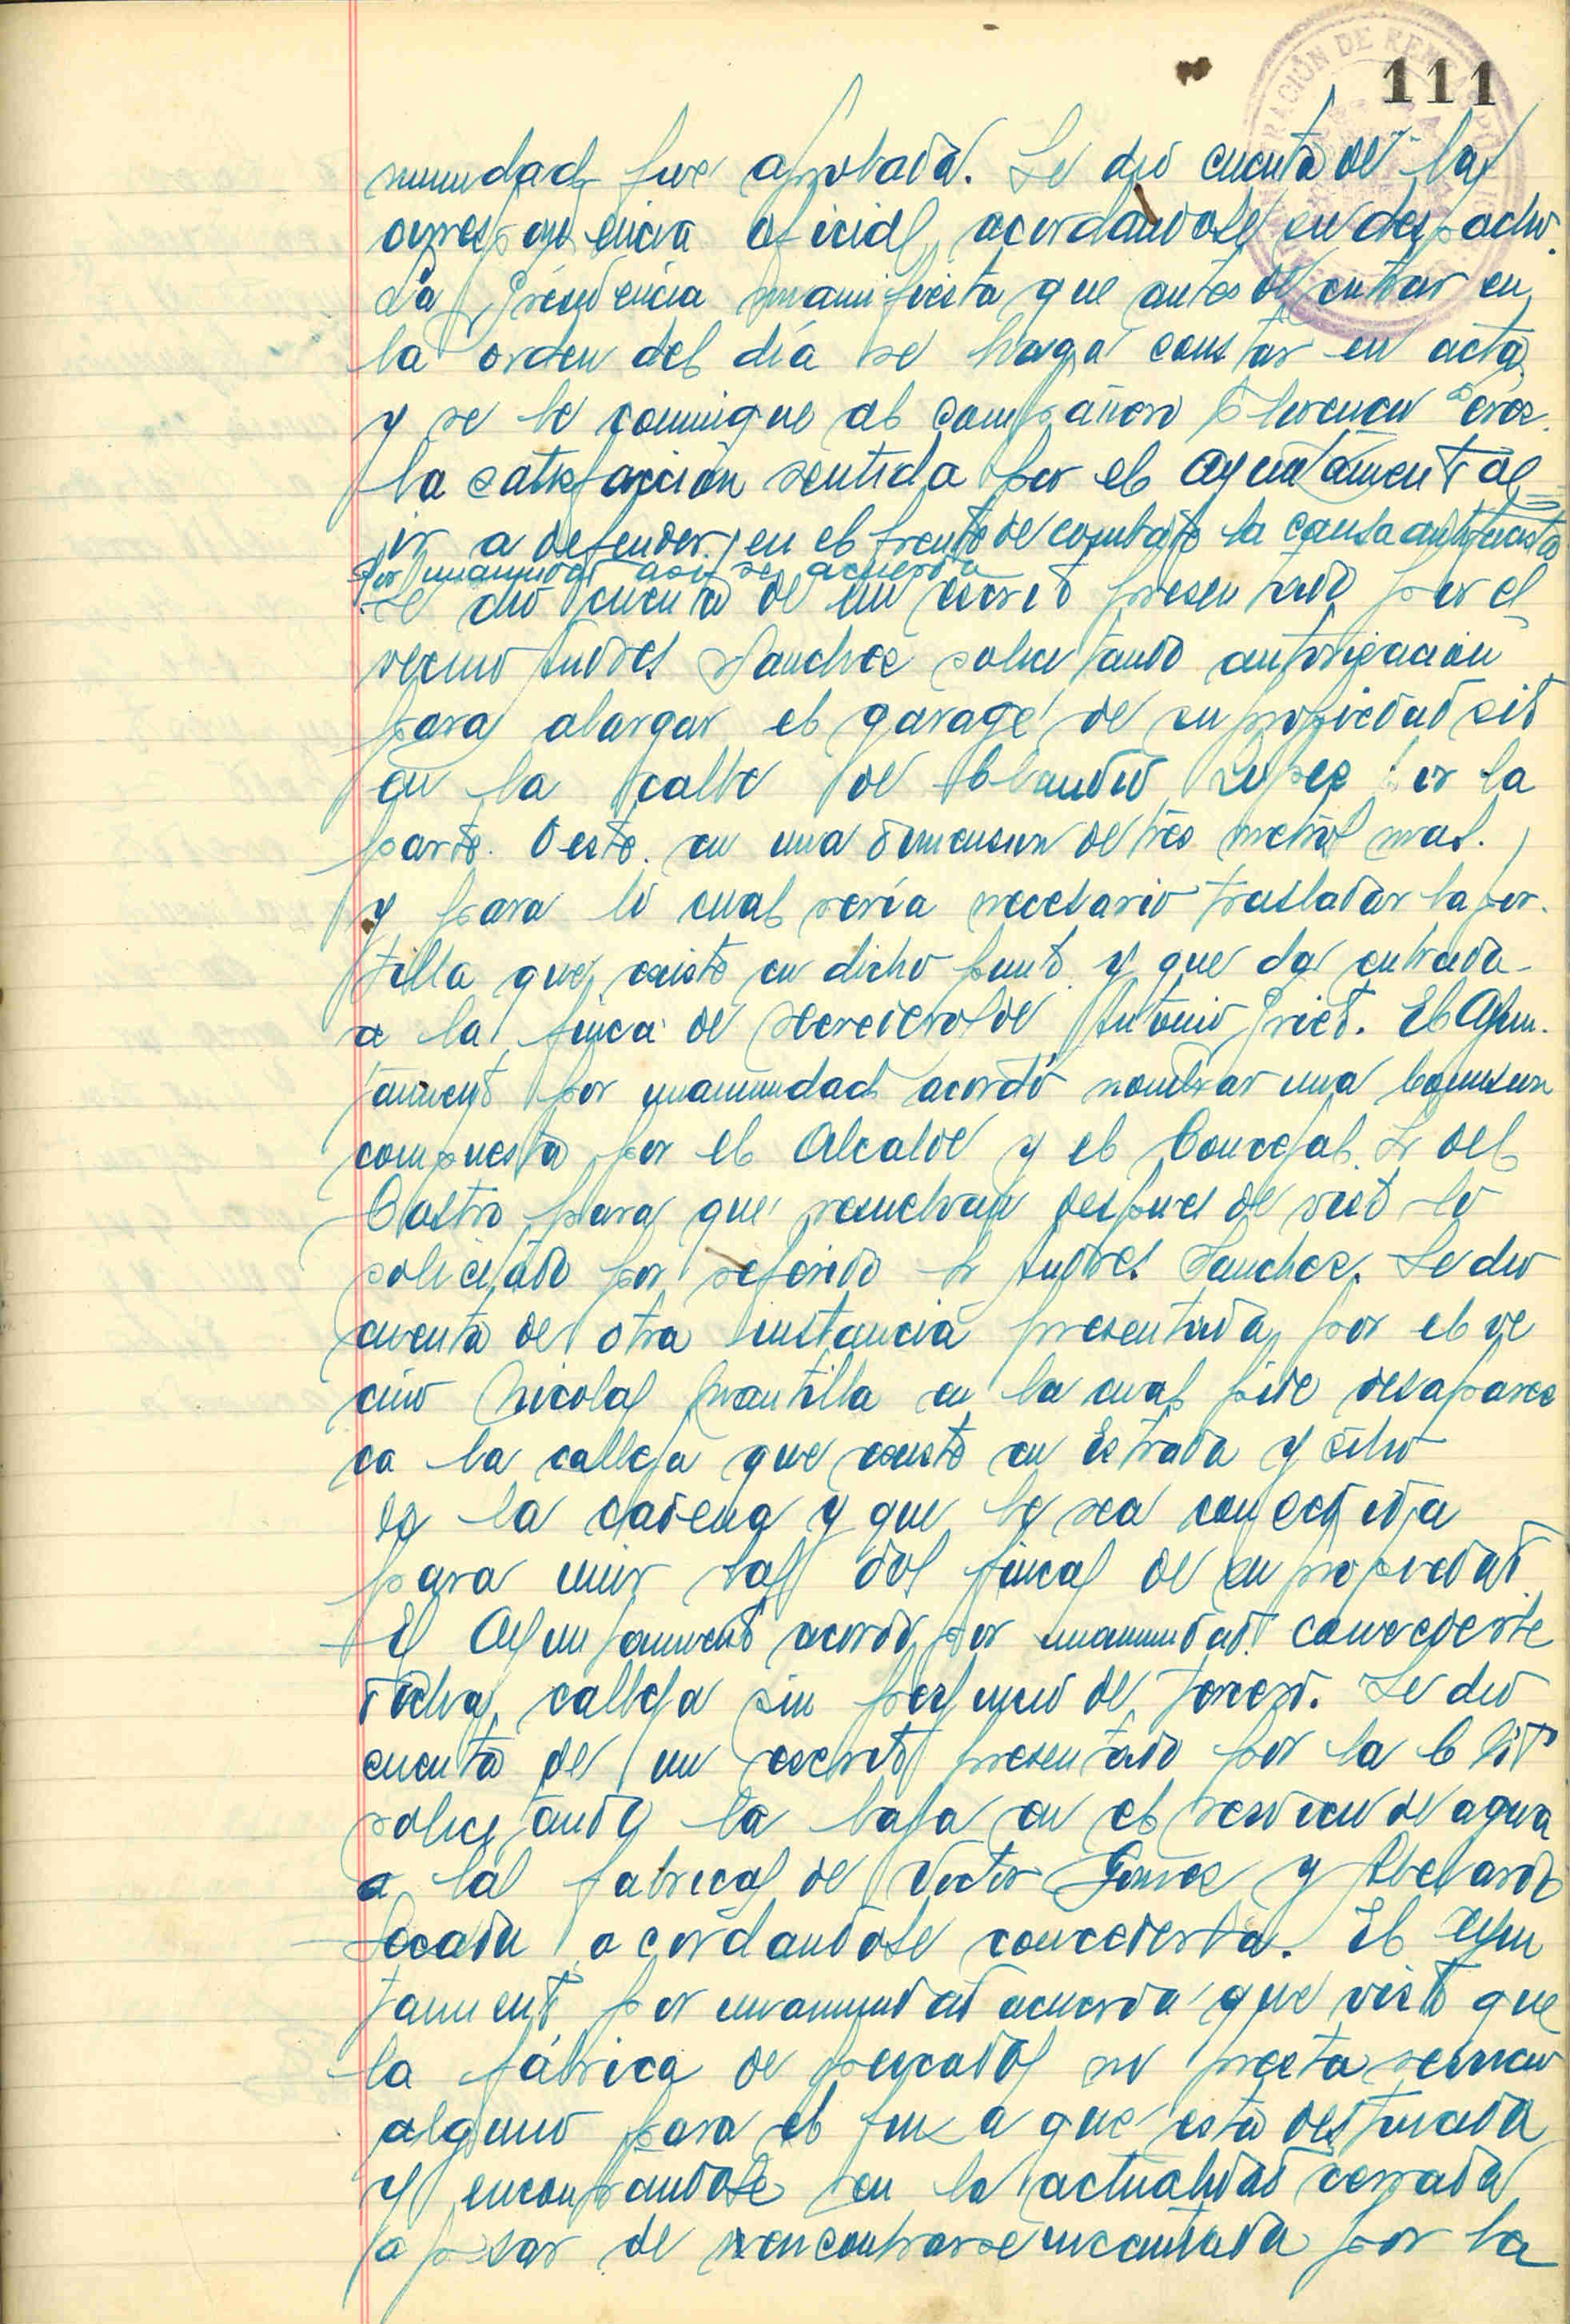 111
nimidad fue aprobada. Se dio cuenta de la
correspondencia oficial, acordandose su despacho.
La Presidencia manifiesta que antes de entrar en
la orden del día se haga constar en acta
y se le comunique al compañero
la satisfacción sentida por el Ayuntamiento al
ir a defender en el frente de combate la causa antifascista
Por unanimidad asi se acuerda
Se dio cuenta de un escrito presentado por el
vecino Andres Sanchez solicitando autorización
para alargar el garage de su propiedad sito
en la calle de Claudio Lopez por la
parte Oeste. en una dimension de tres metros mas.
y para lo cual sería necesario trasladar la por-
tilla que existe en dicho punto y que da entrada
a la finca de herederos de Antonio Prieto. El Ayun-
tamiento por unanimidad acordó nombrar una Comision
compuesta por el Alcalde y el Concejal Sr del
Castro para que resuelvan despues de visto lo
solicitado por referido Sr Andres Sanchez. Se dio
cuenta de otra instancia presentada por el ve
cino Nicolas Mantilla en la cual pide desaparez
ca la calleja que existe en Estrada y sitio
de la cadena y que le sea concedida
para unir las dos fincas de su propiedad
El Ayuntamiento acordó por unanimidad concederle
dicha calleja sin perjuicio de tercero. Se dio
cuenta de un escrito presentado por la
solicitando la baja en el servicio de agua
a las fabricas de Victor Gomez y Abelardo
acordandose concederla. El Ayun
tamiento por unanimidad acuerda que visto que
la fábrica de pescados no presta servicio
alguno para el fin a que esta destinada
y encontrandose en la actualidad cerrada
a pesar de encontrarse incautada por la